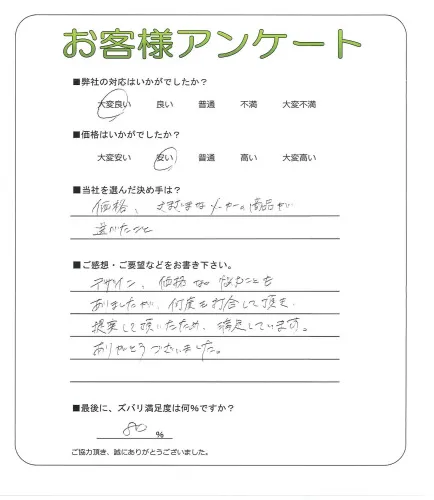 お客様アンケート
■弊社の対応はいかがでしたか?
大変良い 良い 普通 不満 大変不満
■価格はいかがでしたか?
大変安い 安い 普通 高い 大変高い
■当社を選んだ決め手は?
価格、さまざまなメーカーの商品が
選べたこと
■ご感想・ご要望などをお書き下さい。
デザイン、価格など なやむことも
ありましたが、何度も打合して頂き、
提案して頂いたため、満足しています。
ありがとうございました。
■最後に、ズバリ満足度は何%ですか?
80 %
ご協力頂き、誠にありがとうございました。